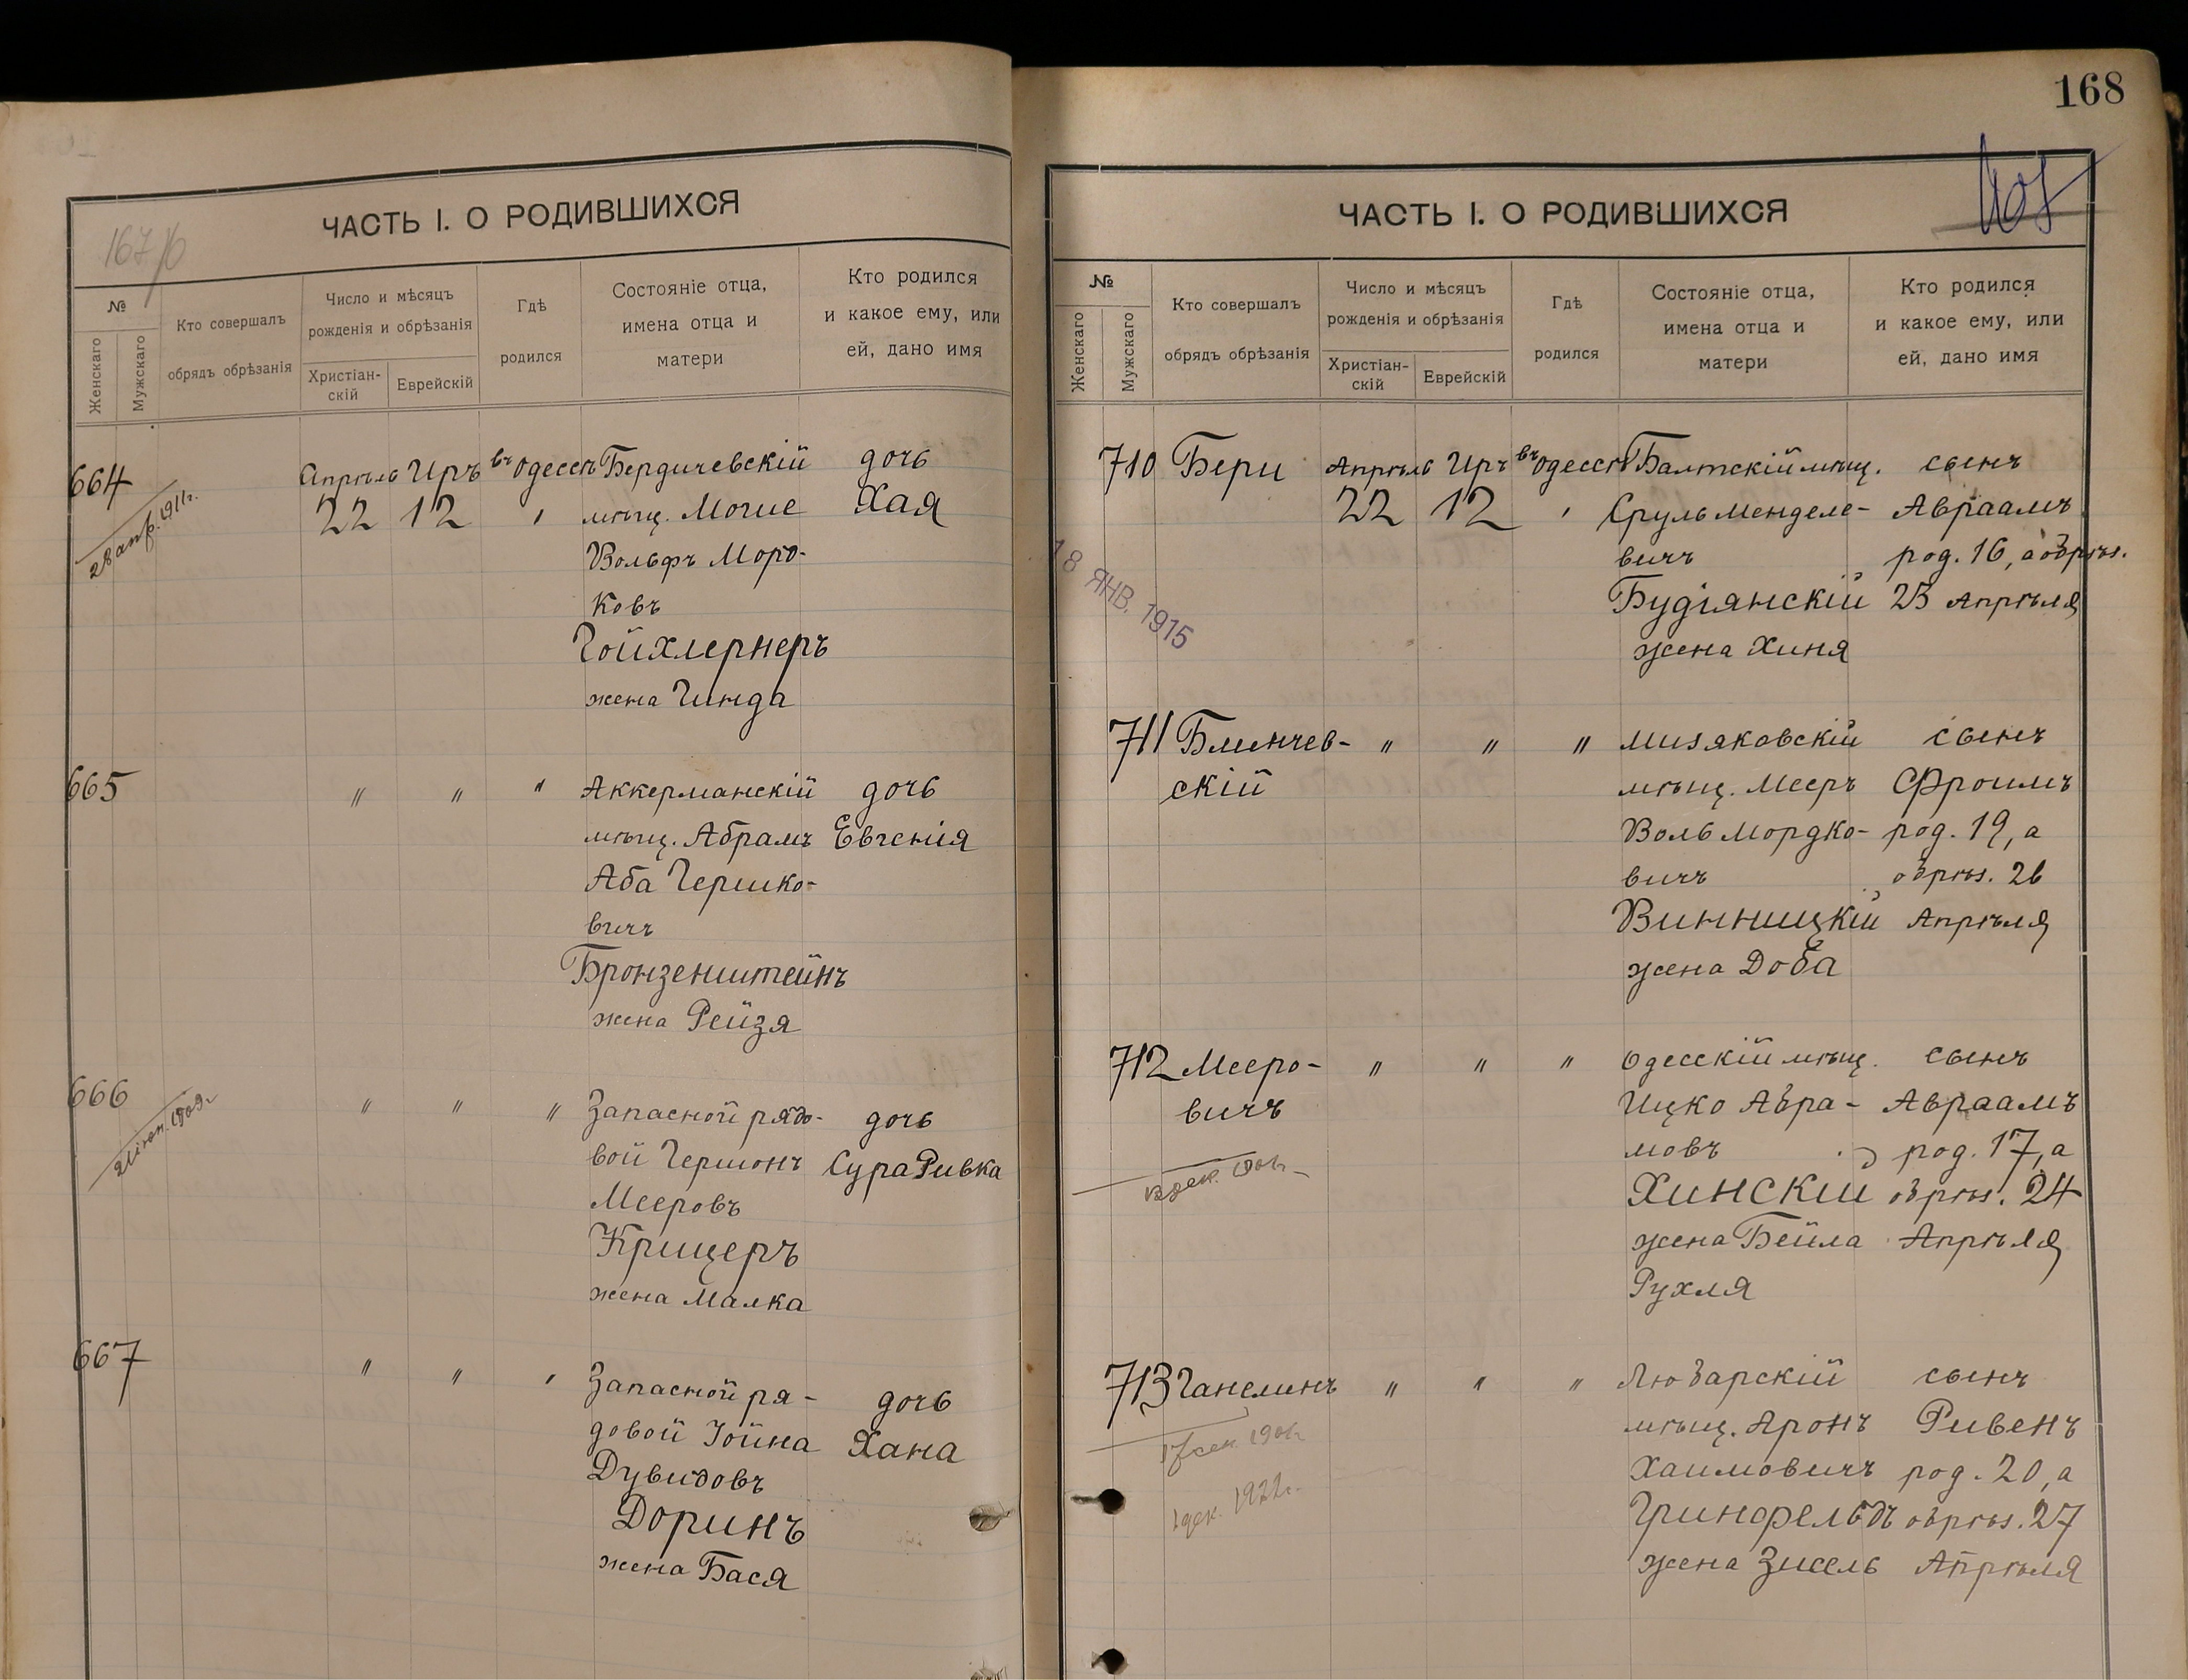 168
167/б
ЧАСТЬ I. О РОДИВШИХСЯ
№
Женскаго
Мужскаго
Кто совершалъ
обрядъ обрѣзанія
Число и мѣсяцъ
рожденія и обрѣзанія
Христіан-
скій
Еврейскій
Гдѣ
родился
Состояніе отца,
имена отца и
матери
Кто родился
и какое ему, или
ей, дано имя
664
28 апр. 1911г.
Апрѣль Иръ въ Одессѣ
22 12
Бердичевскій
мѣщ. Мошe
Вольфъ Моро-
ковъ
Гойхлернеръ
жена Гинда
дочь
Хая
665
" " "
Аккерманскій
мѣщ. Абрамъ
Аба Гершко-
вичъ
Бронзенштейнъ
жена Рейзя
дочь
Евгенія
666
" " "
Запасной рядо-
вой Гершонъ
Мееровъ
Крицеръ
жена Малка
дочь
Сура Ривка
667
" " "
Запасной ря-
довой Іойна
Дувидовъ
Доринъ
жена Бася
дочь
Хана
ЧАСТЬ I. О РОДИВШИХСЯ
№
Женскаго
Мужскаго
Кто совершалъ
обрядъ обрѣзанія
Число и мѣсяцъ
рожденія и обрѣзанія
Христіан-
скій
Еврейскій
Гдѣ
родился
Состояніе отца,
имена отца и
матери
Кто родился
и какое ему, или
ей, дано имя
710 Бери
18 ЯНВ. 1915
Апрѣль Иръ въ Одессѣ
22 12
Балтскій мѣщ.
Сруль Менделе-
вичъ
Будіянскій
жена Хиня
сынъ
Авраамъ
род. 16, а обрѣз.
23 Апрѣля
711 Блинчев-
скій
" " "
Мизяковскій
мѣщ. Мееръ
Воль Мордко-
вичъ
Винницкій
жена Доба
сынъ
Фроимъ
род. 19, а
обрѣз. 26
Апрѣля
712 Мееро-
вичъ
" " "
Одесскій мѣщ.
Ицко Абра-
мовъ
Хинскій
жена Бейла
Рухля
сынъ
Авраамъ
род. 17, а
обрѣз. 24
Апрѣля
713 Ганелинъ
1 дек. 1922г.
" " "
Любарскій
мѣщ. Аронъ
Хаимовичъ
Гринфельдъ
жена Зисель
сынъ
Ривенъ
род. 20, а
обрѣз. 27
Апрѣля